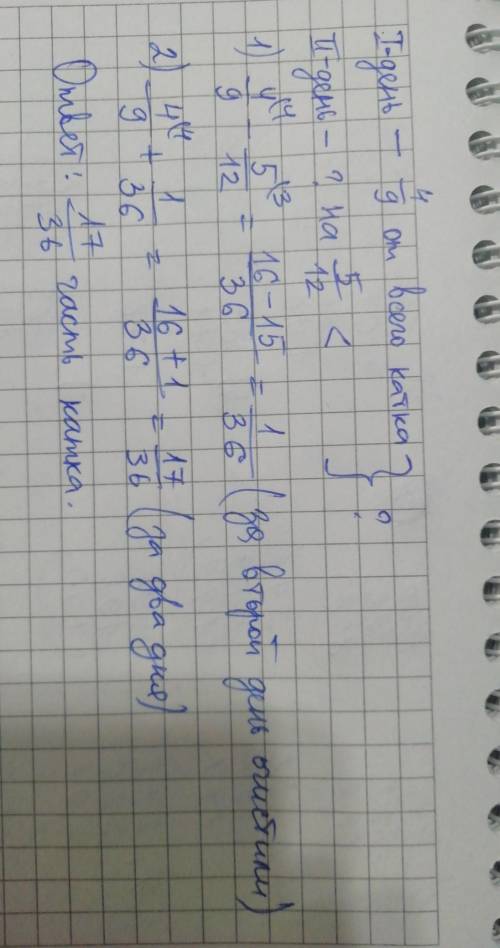 I-день — 4/9 от всего катка } ?
II-день — ? на 5/12 <
1) 4\4/9 - 5\3/12 = 16-15/36 = 1/36 (за второй день очистили)
2) 4\4/9 + 1/36 = 16+1/36 = 17/36 (за два дня)
Ответ: 17/36 часть катка.